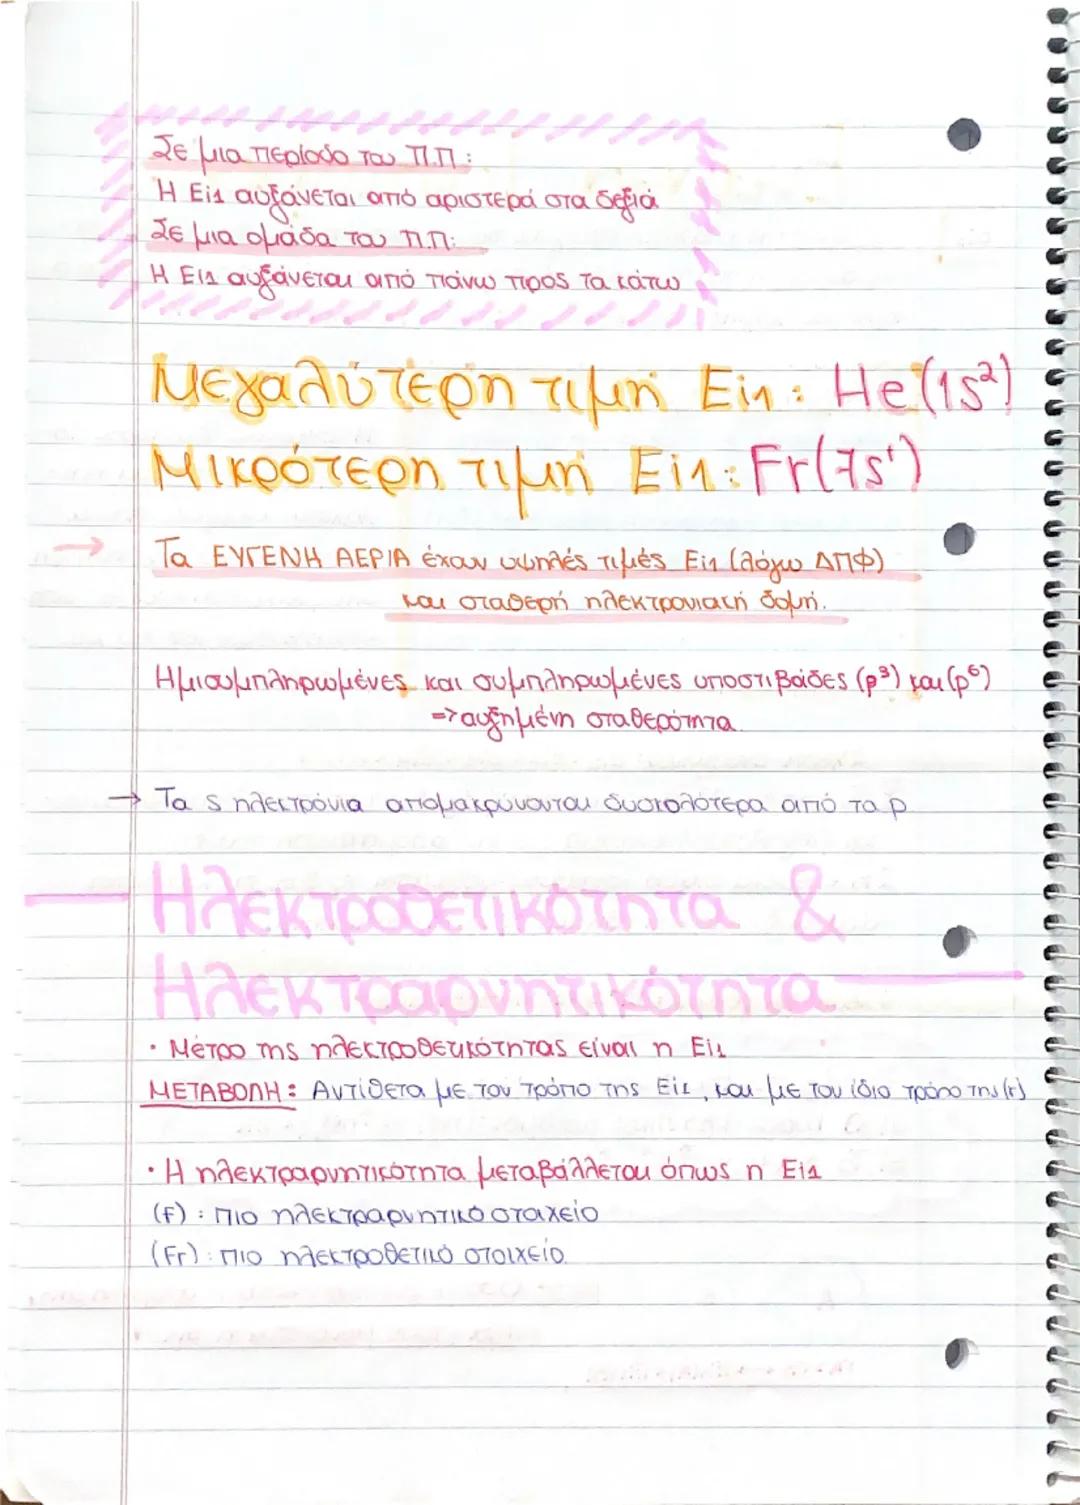 Σε μια περίοδο του Π.Π :
Η Ει1 αυξάνεται από αριστερά στα δεξιά
Σε μια ομάδα του Π.Π:
Η Ει1 αυξάνεται από πάνω προς τα κάτω
Μεγαλύτερη τιμή Ει1 : He (1s²)
Μικρότερη τιμή Ει1: Fr(7s¹)
→ Τα ΕΥΓΕΝΗ ΑΕΡΙΑ έχουν υψηλές τιμές Ει1 (λόγω ΔΠΦ)
και σταθερή ηλεκτρονιακή δομή.
Ημισυμπληρωμένες και συμπληρωμένες υποστιβάδες (p³) και (p⁶)
=> αυξημένη σταθερότητα.
→ Τα s ηλεκτρόνια απομακρύνονται δυσκολότερα από τα p
Ηλεκτροθετικότητα &
Ηλεκτραρνητικότητα
· Μέτρο της ηλεκτροθετικότητας είναι η Ει1
ΜΕΤΑΒΟΛΗ : Αντίθετα με τον τρόπο της Ει1, και με τον ίδιο τρόπο της (r)
· Η ηλεκτραρνητικότητα μεταβάλλεται όπως η Ει1
(F) : πιο ηλεκτραρνητικό στοιχείο
(Fr) : πιο ηλεκτροθετικό στοιχείο.